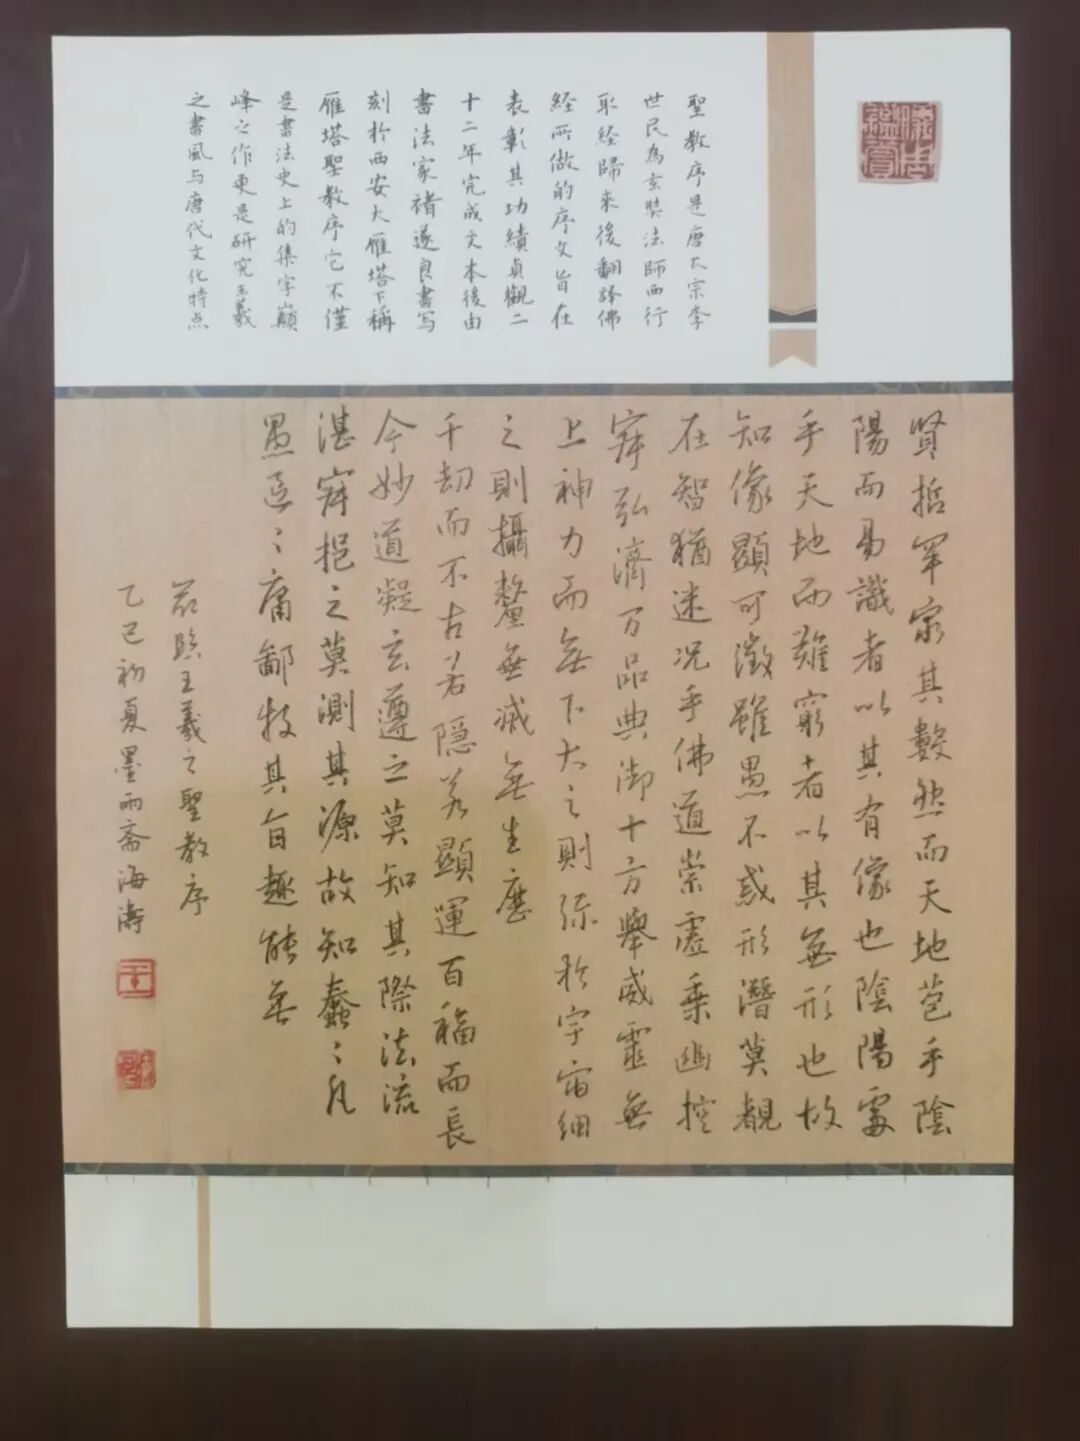 聖教序是唐太宗李
世民為玄奘法師西行
取経歸来後翻譯佛
経所做的序文旨在
表彰其功績貞觀二
十二年完成文本後由
書法家褚遂良書写
刻於西安大雁塔下稱
雁塔聖教序它不僅
是書法史上的集字巔
峰之作更是研究王羲
之書風与唐代文化特点
賢哲罕窮其數然而天地苞乎陰
陽而易識者以其有像也陰陽處
乎天地而難窮者以其無形也故
知像顯可徵雖愚不惑形潛莫覩
在智猶迷况乎佛道崇虛乘幽控
寂弘濟万品典御十方舉威靈無
上神力而無下大之則弥於宇宙細
之則攝釐無滅無生歷
千劫而不古若隱若顯運百福而長
今妙道凝玄遵之莫知其際法流
湛寂挹之莫測其源故知蠢〻凡
愚區〻庸鄙投其旨趣能無
節臨王羲之聖教序
乙巳初夏墨雨斋海濤